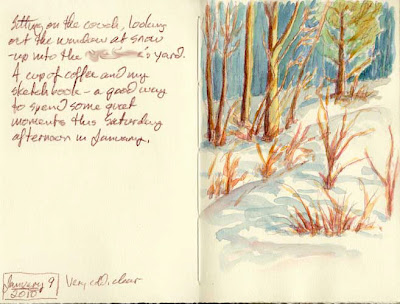 Sitting on the couch, looking
out the window at snow
-up into the 's yard.
A cup of coffee and my
sketchbook - a good way
to spend some quiet
moments this Saturday
afternoon in January.
January 9
2010
Very cold, clear